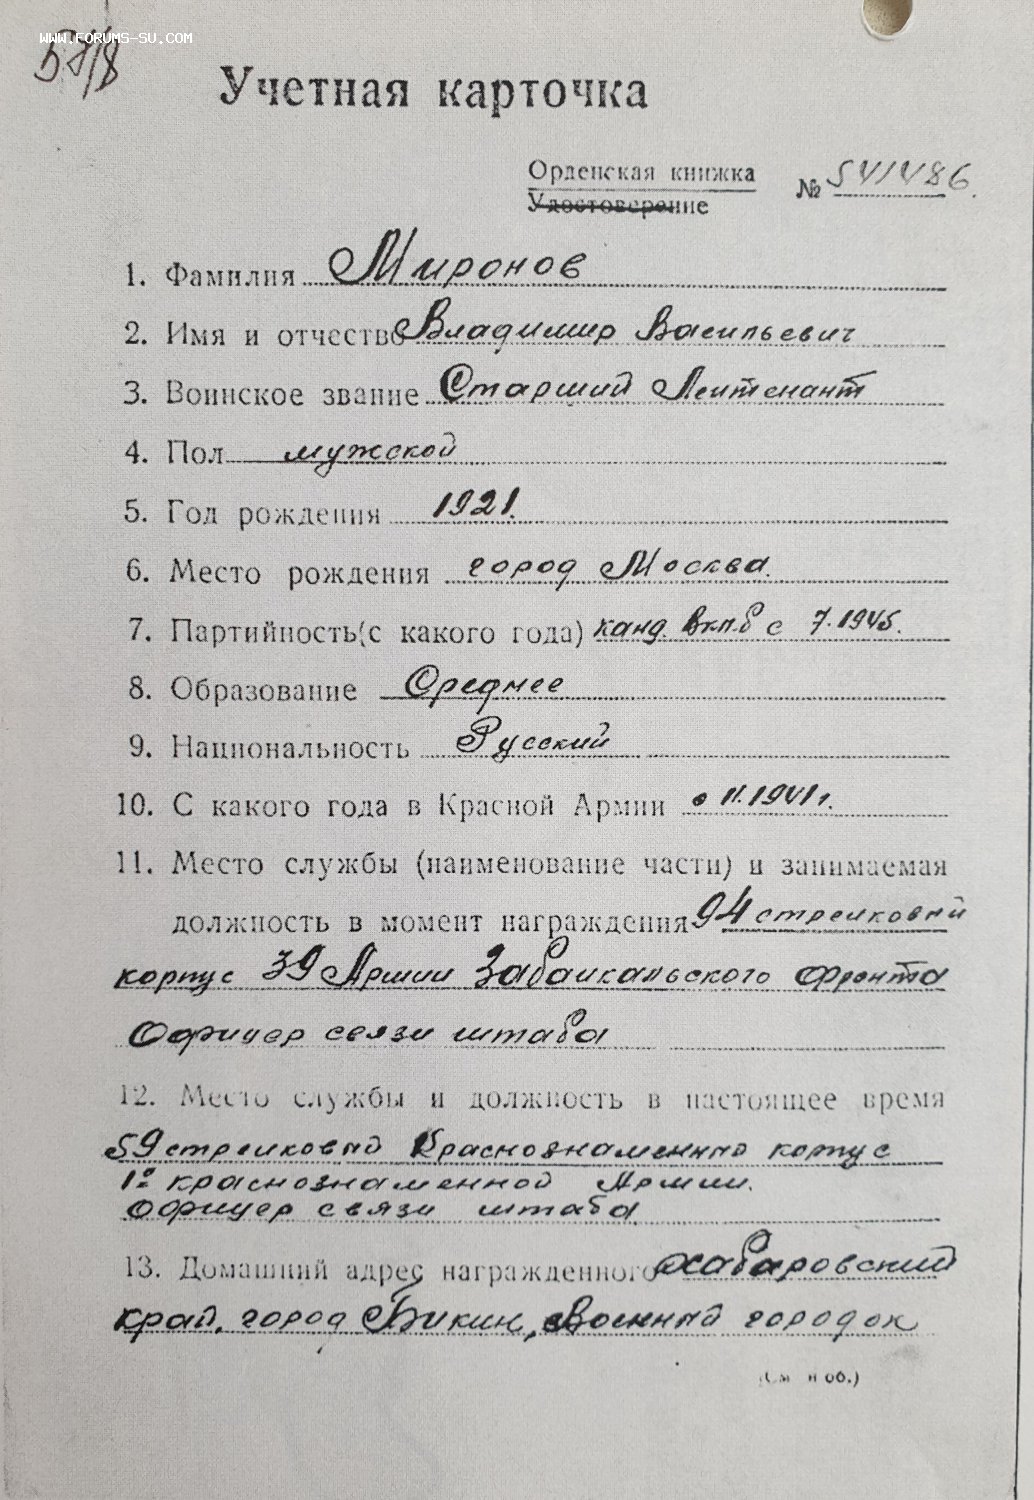 WWW.FORUMS-SU.COM
57/8
Учетная карточка
Орденская книжка
Удостоверение
№ 541486.
1. Фамилия Миронов
2. Имя и отчество Владимир Васильевич
3. Воинское звание Старший Лейтенант
4. Пол мужской
5. Год рождения 1921.
6. Место рождения город Москва.
7. Партийность (с какого года) канд. Вкп.б с 7.1945.
8. Образование Среднее
9. Национальность Русский
10. С какого года в Красной Армии с 11.1941 г.
11. Место службы (наименование части) и занимаемая
должность в момент награждения 94 стрелковый
корпус 39 Армии Забайкальского Фронта
Офицер связи штаба
12. Место службы и должность в настоящее время
59 стрелковый Краснознаменный корпус
1ой краснознаменной Армии.
Офицер связи штаба
13. Домашний адрес награжденного Хабаровский
край, город Бикин, Военный городок
(См. н об.)